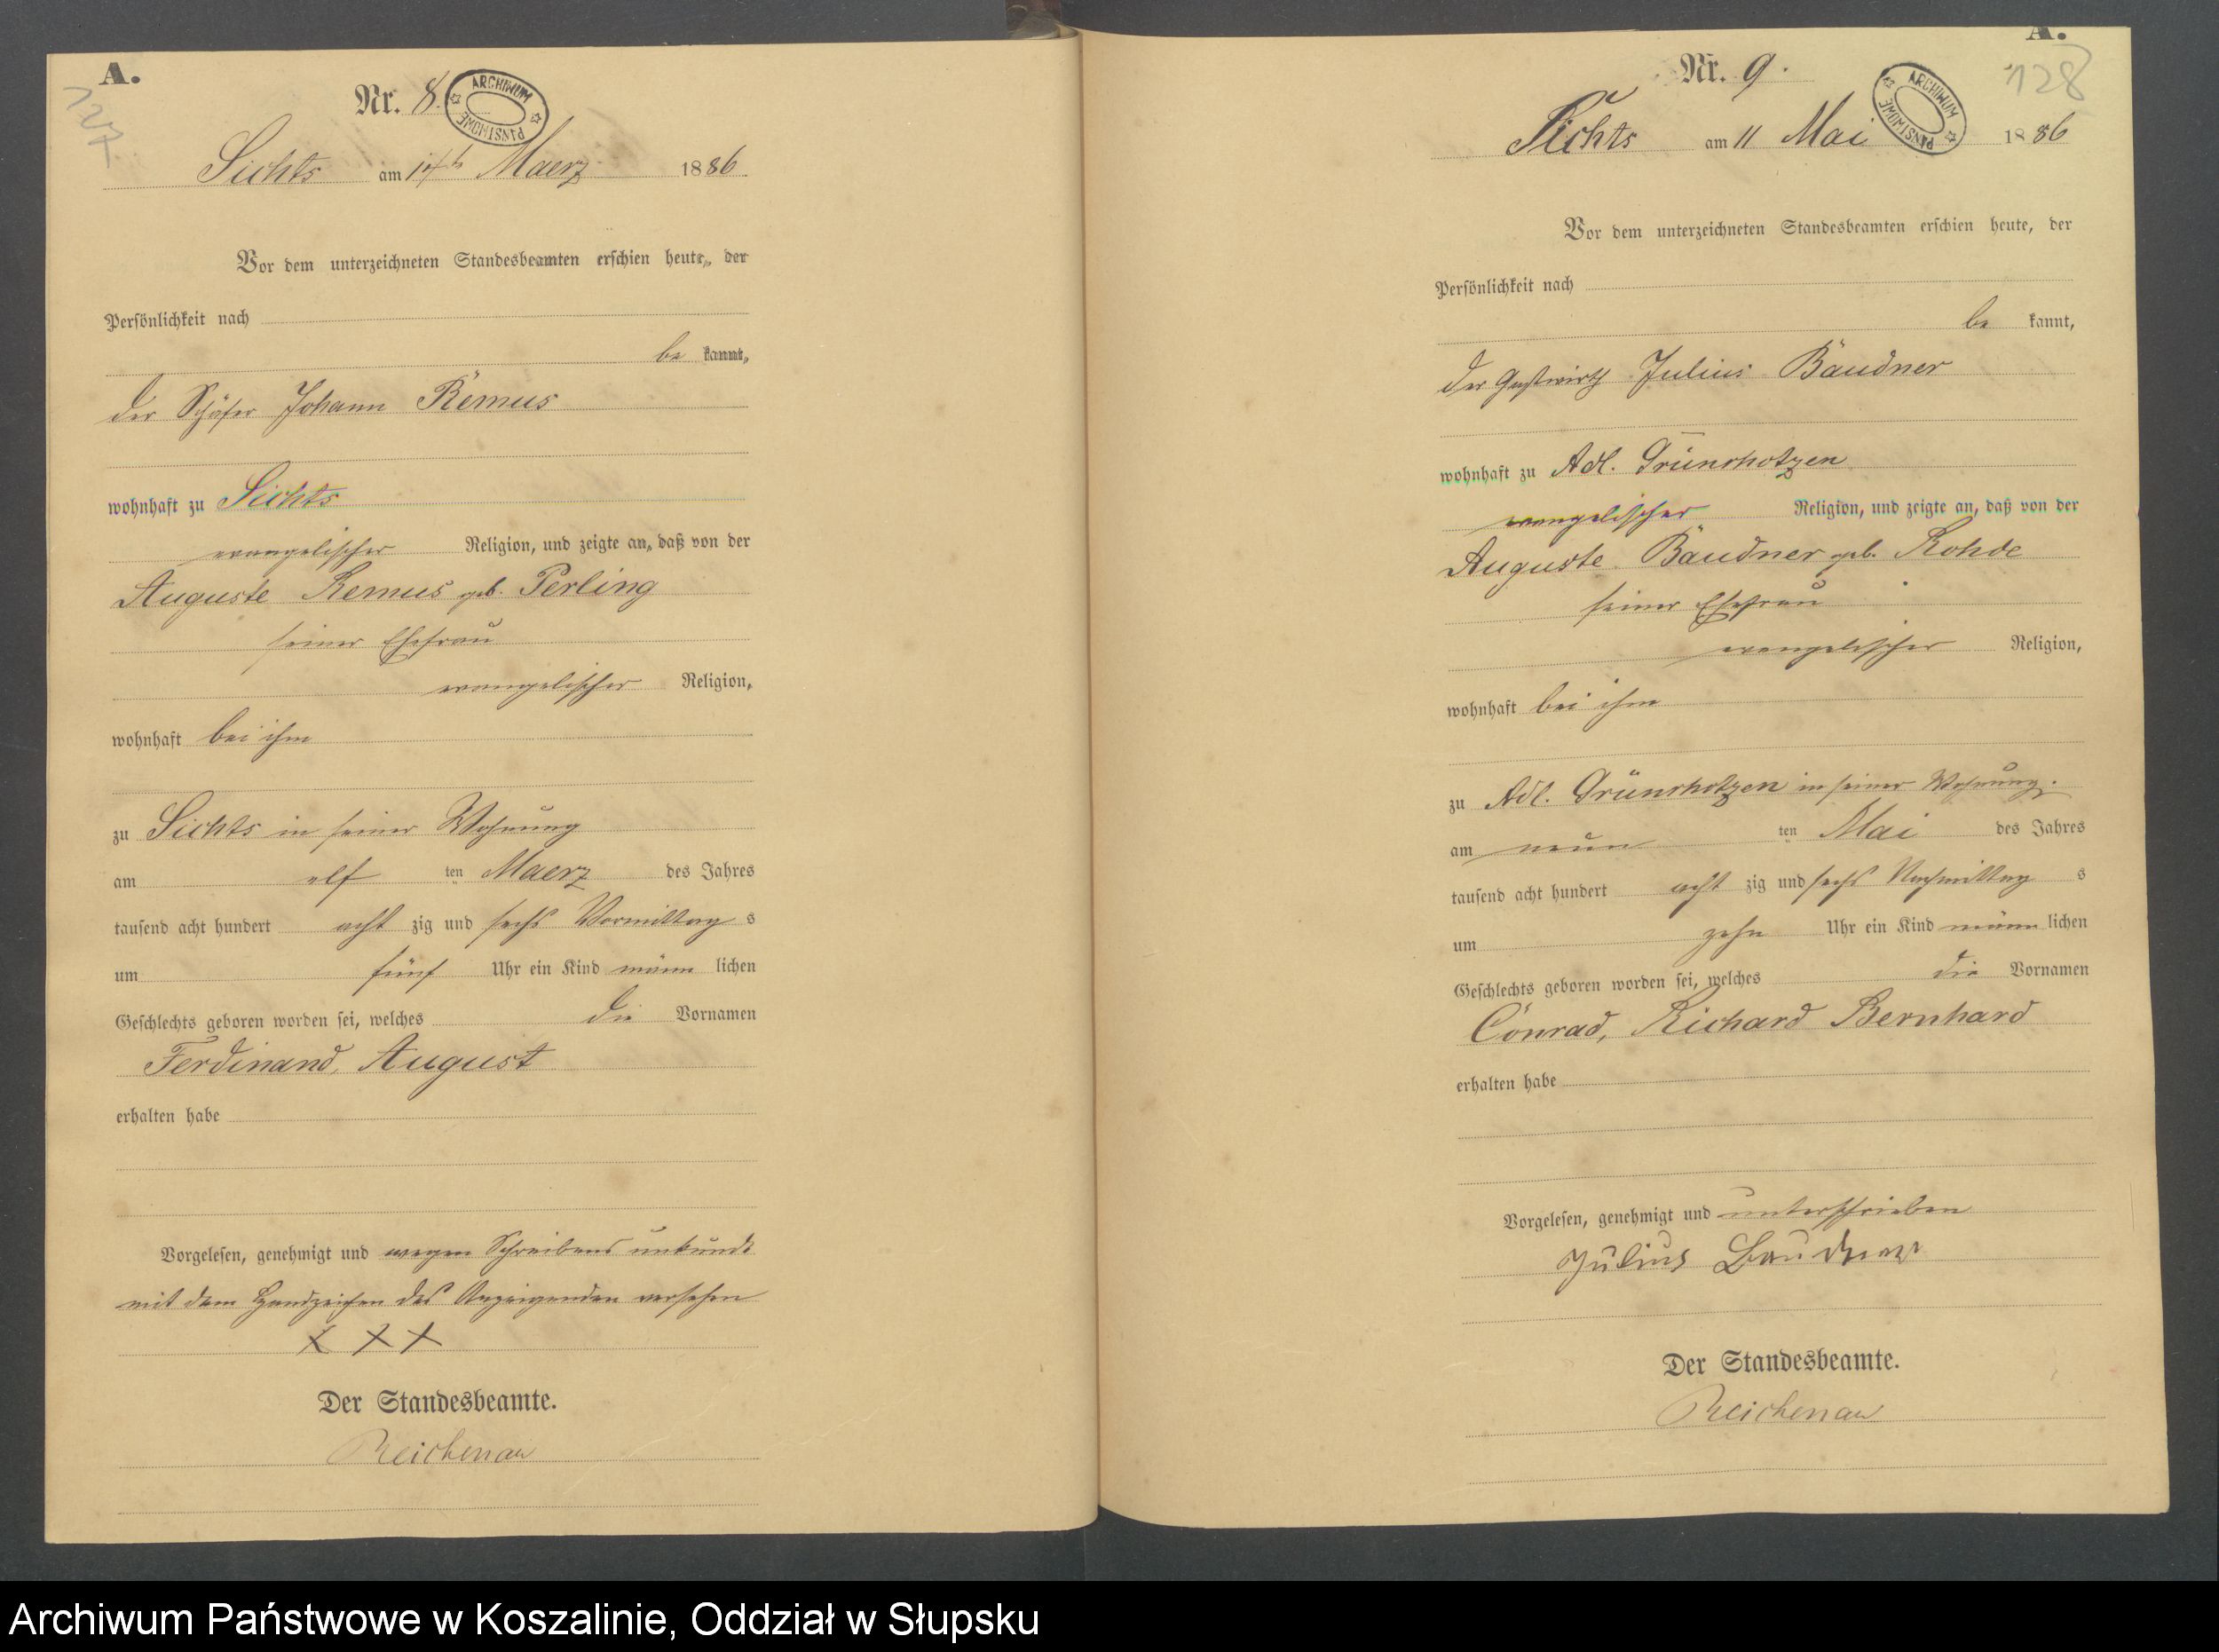 A.
127
Nr. 8.
ARCHIWUM PAŃSTWOWE
Sichts am 14 Maerz 1886
Vor dem unterzeichneten Standesbeamten erschien heute, der
Persönlichkeit nach
be kannt,
der Schäfer Johann Remus
wohnhaft zu Sichts
evangelischer Religion, und zeigte an, daß von der
Auguste Remus geb. Perling
seiner Ehefrau
evangelischer Religion,
wohnhaft bei ihm
zu Sichts in seiner Wohnung
am elf ten Maerz des Jahres
tausend acht hundert acht zig und sechs Vormittag s
um fünf Uhr ein Kind männ lichen
Geschlechts geboren worden sei, welches die Vornamen
Ferdinand, August
erhalten habe
Vorgelesen, genehmigt und wegen Schreibens unkunde
mit dem Handzeichen des Anzeigenden versehen
XXX
Der Standesbeamte.
Reichenau
A.
128
Nr. 9.
ARCHIWUM PAŃSTWOWE
Sichts am 11 Mai 1886
Vor dem unterzeichneten Standesbeamten erschien heute, der
Persönlichkeit nach
be kannt,
der Gastwirth Julius Baudner
wohnhaft zu Adl.
evangelischer Religion, und zeigte an, daß von der
Auguste Baudner geb. Rohde
seiner Ehefrau
evangelischer Religion,
wohnhaft bei ihm
zu Adl. in seiner Wohnung.
am neun ten Mai des Jahres
tausend acht hundert acht zig und sechs Nachmittag s
um zehn Uhr ein Kind männ lichen
Geschlechts geboren worden sei, welches die Vornamen
Conrad, Richard Bernhard
erhalten habe
Vorgelesen, genehmigt und unterschrieben
Julius Baudner
Der Standesbeamte.
Reichenau
Archiwum Państwowe w Koszalinie, Oddział w Słupsku